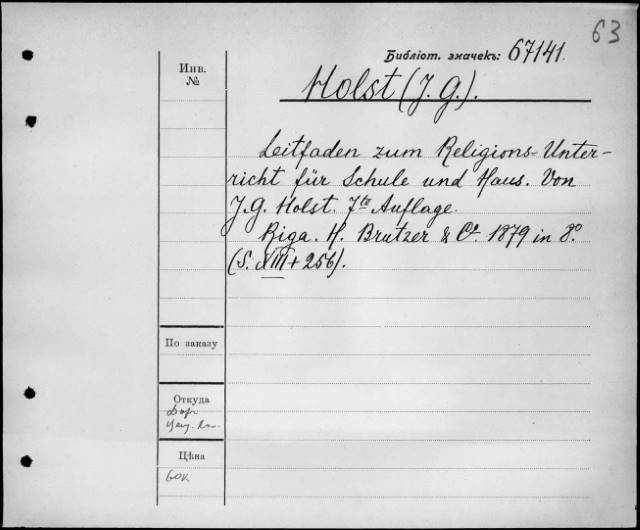 63
Библіот. значекъ: 67141.
Инв.
№
Holst (J. G.).
Leitfaden zum Religions-Unter-
richt für Schule und Haus. Von
J. G. Holst. 7te Auflage.
Riga. H. Brutzer & Co. 1879 in 8º
(S. XIII + 256).
По заказу
Откуда
Цѣна
60к.